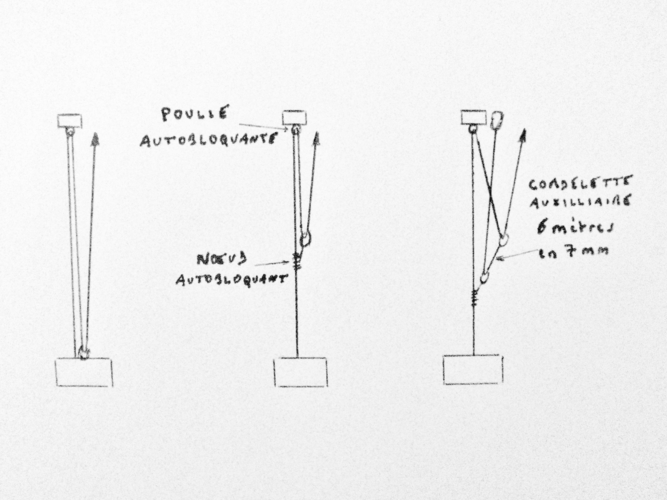 POULIE
AUTOBLOQUANTE
NŒUD
AUTOBLOQUANT
CORDELETTE
AUXILLIAIRE
6 mètres
en 7 mm